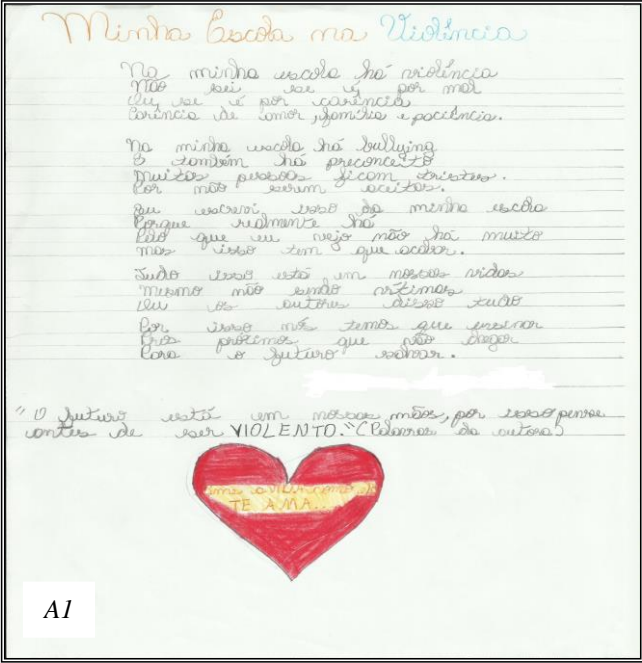 Minha Escola na Violência
Na minha escola há violência
Não sei se é por mal
Ou se é por carência
Carência de amor, família e paciência.
Na minha escola há bullying
E também há preconceito
Muitas pessoas ficam tristes.
Por não serem aceitas.
Eu escrevi isso da minha escola
Porque realmente há
Pão que eu vejo não há muito
Mas isso tem que acabar.
Tudo isso está em nossas vidas
Mesmo não sendo vítimas
Ou os autores disso tudo
Por isso nós temos que ensinar
Pros próximos que vão chegar
Para o futuro salvar.
"O futuro está em nossas mãos, por isso pense
antes de ser VIOLENTO." (Palavras da autora)
a VIDA como
TE AMA...
A1